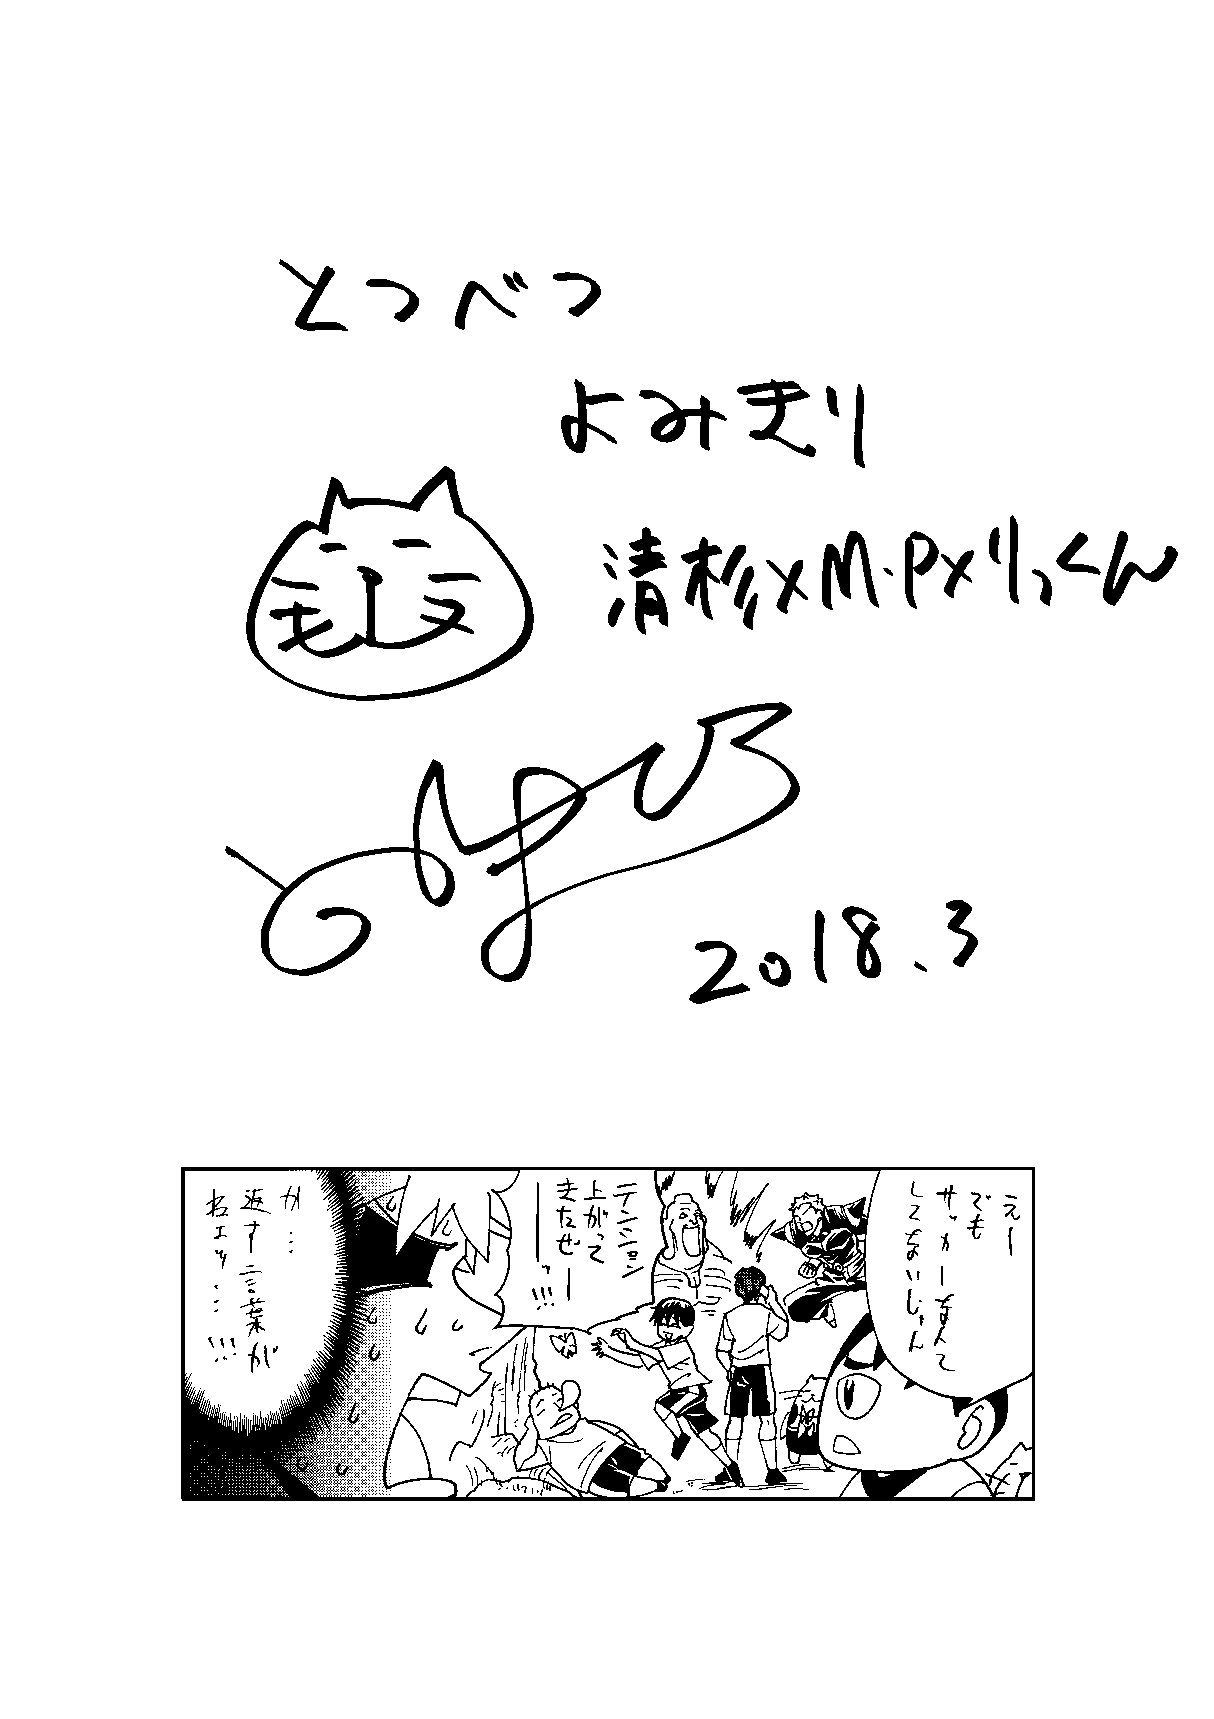 とつべつ
よみきり
清杉×M・P×りっくん
モ
ヌ
2018.3
えー
でも
サッカーなんて
してないじゃん
テンション
上がって
きたぜー
──ッ!!!
か…
返す言葉が
ねェッ…!!!